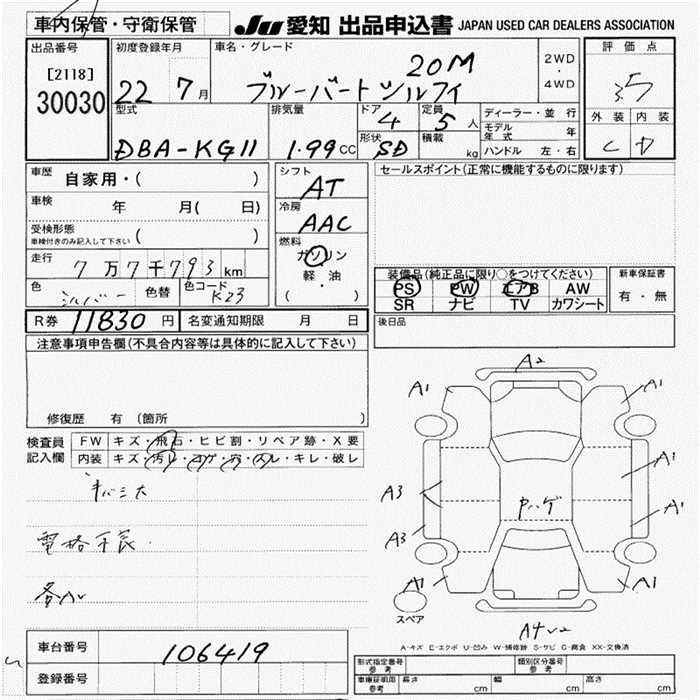 車内保管・守衛保管
JU 愛知 出品申込書 JAPAN USED CAR DEALERS ASSOCIATION
出品番号
[2118]
30030
初度登録年月
22 7月
車名・グレード
20M
ブルーバードシルフィ
2WD
・
4WD
評価点
3.5
外装 内装
C D
型式
DBA-KG11
排気量
1.99 CC
ドア
4
形状
SD
定員
5人
積載
kg
ディーラー・並行
モデル年式 年
ハンドル 左・右
車歴 自家用・( )
車検 年 月( 日)
受検形態
車検付きのみ記入して下さい ( )
走行 7万7千793km
色 シルバー 色替 色コード K23
シフト
AT
冷房
AAC
燃料
ガソリン
軽・油
( )
セールスポイント(正常に機能するものに限ります)
装備品(純正品に限り○をつけてください)
PS PW エアB AW
SR ナビ TV カワシート
新車保証書
有・無
R券 11830円 名変通知期限 月 日
後日品
注意事項申告欄(不具合内容等は具体的に記入して下さい)
修復歴 有(箇所 )
検査員
記入欄
FW キズ・飛石・ヒビ割・リペア跡・X要
内装 キズ・汚レ・コゲ・穴・スレ・キレ・破レ
電格不良
A2
A1 A1
A3 A1
Pハゲ
A3 A1
A1 A1
スペア
A-キズ E-エクボ U-凹み W-補修跡 S-サビ C-腐食 XX-交換済
車台番号 106419
登録番号
形式指定番号 参考
類別区分番号 参考
車庫証明用 参考 長さ cm 幅 cm 高さ cm